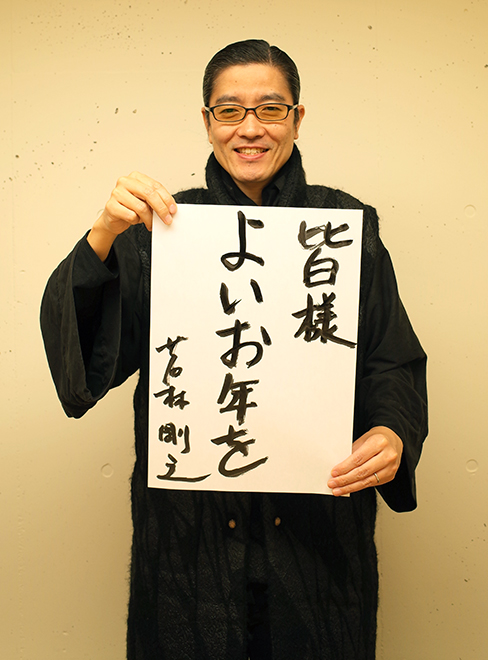 皆様
よいお年を
若林剛之